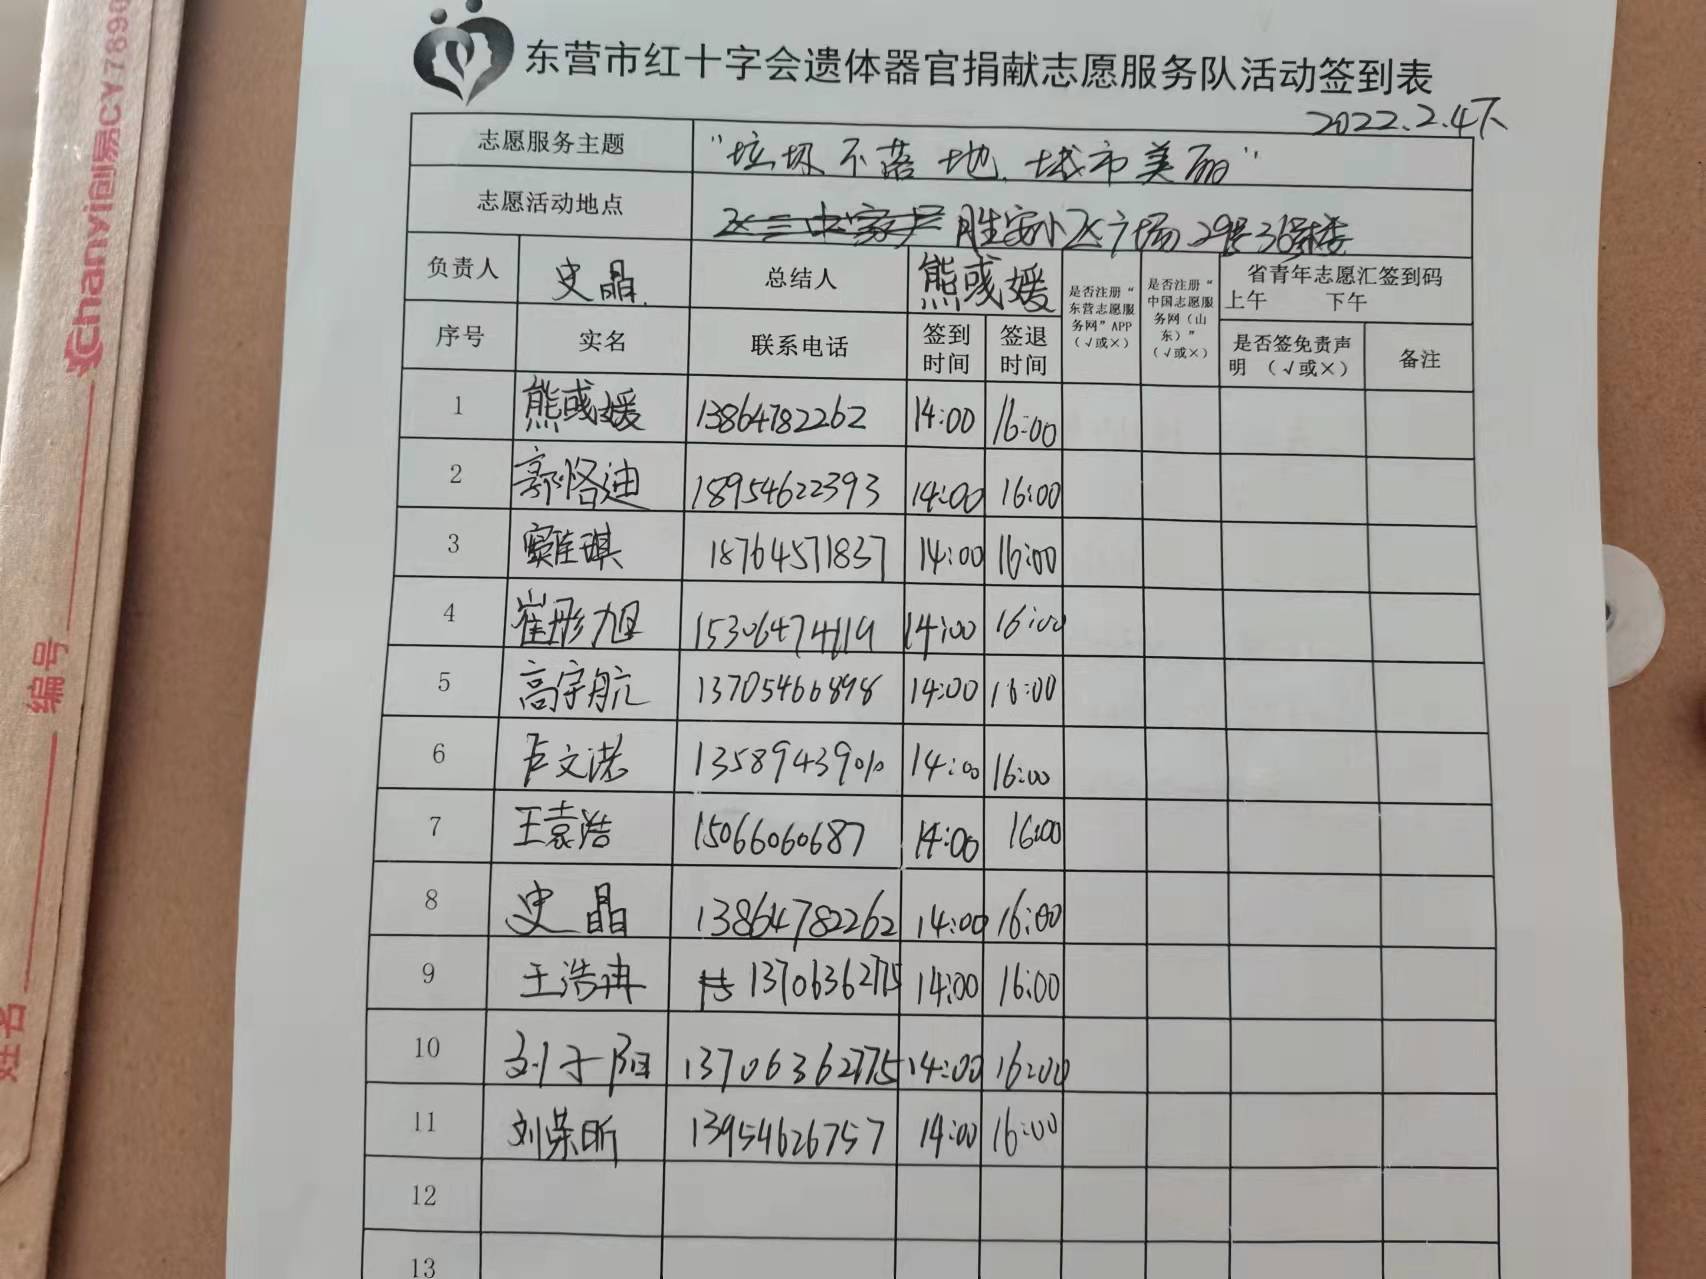 东营市红十字会遗体器官捐献志愿服务队活动签到表
2022.2.4下
志愿服务主题 "垃圾不落地、城市美丽"
志愿活动地点 胜安小区广场29号36号楼
负责人 史晶. 总结人 熊彧媛 是否注册“东营志愿服务网”APP（√或×） 是否注册“中国志愿服务网（山东）”（√或×） 省青年志愿汇签到码 上午 下午
序号 实名 联系电话 签到时间 签退时间 是否签免责声明 （√或×） 备注
1 熊彧媛 13864782262 14:00 16:00
2 郭恪迪 18954622393 14:00 16:00
3 窦佳琪 18764571837 14:00 16:00
4 崔彤旭 14:00 16:00
5 高宇航 13705466898 14:00 16:00
6 卢文诺 14:00 16:00
7 王袁浩 15066060687 14:00 16:00
8 史晶 13864782262 14:00 16:00
9 王浩冉 13706362775 14:00 16:00
10 刘子阳 13706362775 14:00 16:00
11 刘荣昕 13954626757 14:00 16:00
12
13
chanyi创易CY
编号
姓名